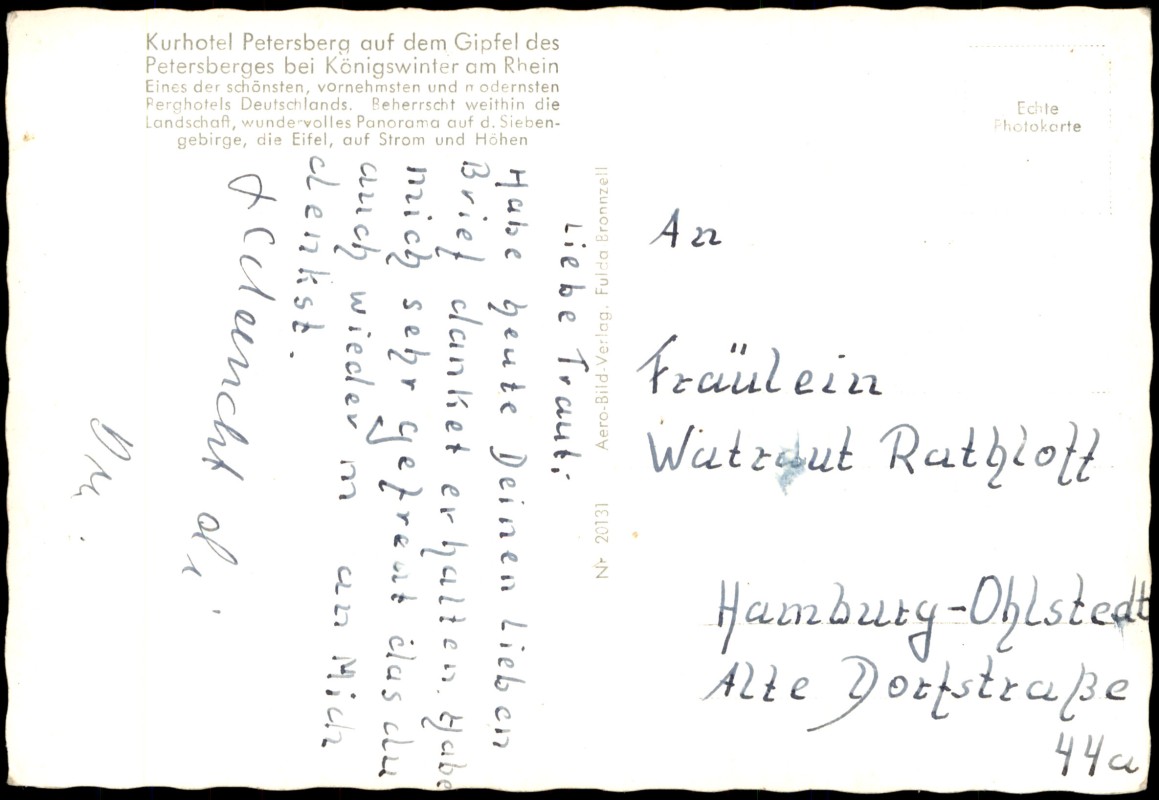 Kurhotel Petersberg auf dem Gipfel des
Petersberges bei Königswinter am Rhein
Eines der schönsten, vornehmsten und modernsten
Berghotels Deutschlands. Beherrscht weithin die
Landschaft, wundervolles Panorama auf d. Sieben-
gebirge, die Eifel, auf Strom und Höhen
Echte
Photokarte
Liebe Traut:
Habe heute Deinen Lieben
Brief danket erhalten. Habe
mich sehr gefreut das du
auch wieder m an Mich
denkst.
Aero-Bild-Verlag, Fulda Bronnzell
Nr 20131
An
Fräulein
Watraut Rathloff
Hamburg-Ohlstedt
Alte Dorfstraße
44a